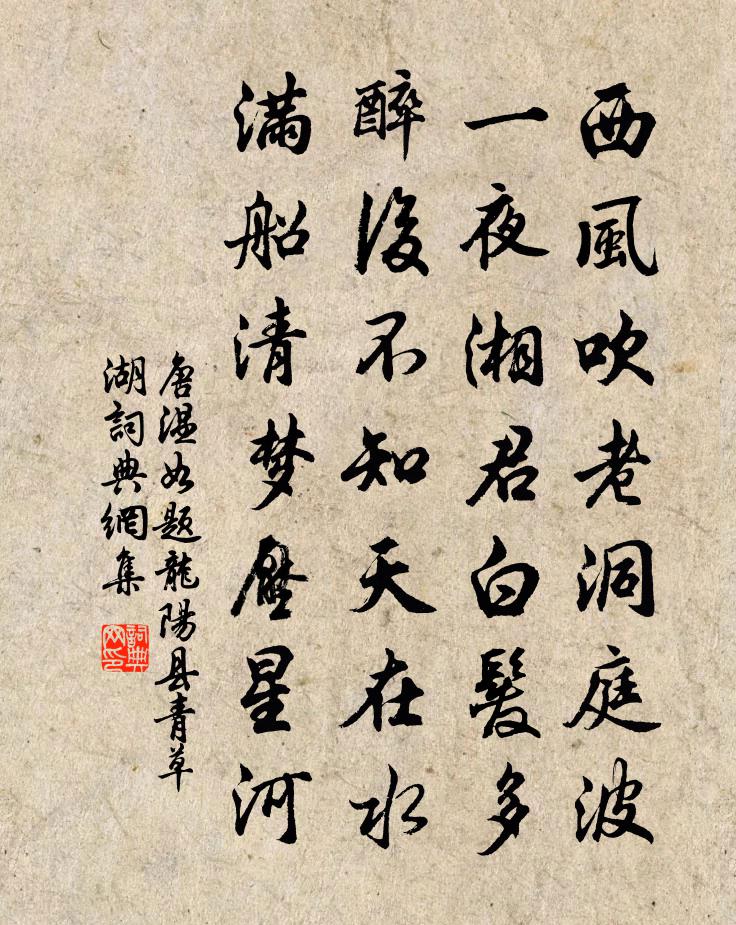 西風吹老洞庭波
一夜湘君白髮多
醉後不知天在水
滿船清梦壓星河
唐温如题龍陽县青草
湖詞典網集
詞典
网印